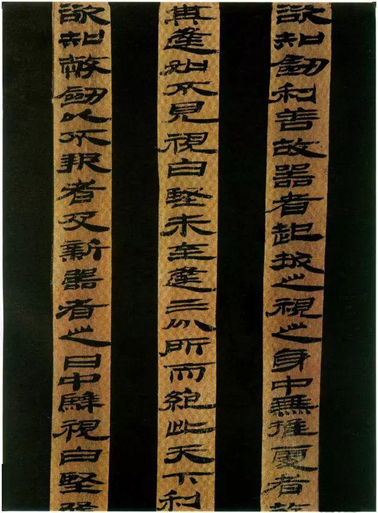 欲知劒利善故器者起拔之視之身中無推處者故
其逢如不見視白堅未至逢三分所而絕此天下利
欲知幣劒以不報者及新器者之日中騂視白堅